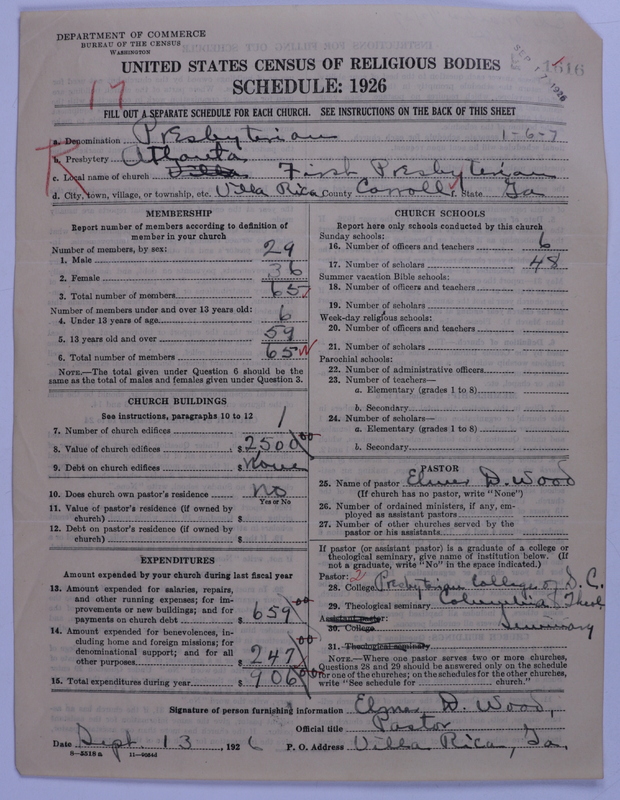 DEPARTMENT OF COMMERCE
BUREAU OF THE CENSUS
WASHINGTON
UNITED STATES CENSUS OF RELIGIOUS BODIES
SCHEDULE: 1926
SEP 17 1926
1616
17
FILL OUT A SEPARATE SCHEDULE FOR EACH CHURCH. SEE INSTRUCTIONS ON THE BACK OF THIS SHEET
a. Denomination Presbyterian 1-6-7
b. Presbytery Atlanta
c. Local name of church Villa First Presbyterian
d. City, town, village, or township, etc. Villa Rica County Carroll f. State Ga
R
MEMBERSHIP
Report number of members according to definition of member in your church
Number of members, by sex:
1. Male 29
2. Female 36
3. Total number of members 65
Number of members under and over 13 years old:
4. Under 13 years of age 6
5. 13 years old and over 59
6. Total number of members 65
NOTE.—The total given under Question 6 should be the same as the total of males and females given under Question 3.
CHURCH BUILDINGS
See instructions, paragraphs 10 to 12
7. Number of church edifices 1
8. Value of church edifices $ 2500 00
9. Debt on church edifices $ None
10. Does church own pastor's residence No
Yes or No
11. Value of pastor's residence (if owned by church) $
12. Debt on pastor's residence (if owned by church) $
EXPENDITURES
Amount expended by your church during last fiscal year
13. Amount expended for salaries, repairs, and other running expenses; for improvements or new buildings; and for payments on church debt $ 659 00
14. Amount expended for benevolences, including home and foreign missions; for denominational support; and for all other purposes $ 247 00
15. Total expenditures during year $ 906 00
CHURCH SCHOOLS
Report here only schools conducted by this church
Sunday schools:
16. Number of officers and teachers 6
17. Number of scholars 48
Summer vacation Bible schools:
18. Number of officers and teachers
19. Number of scholars
Week-day religious schools:
20. Number of officers and teachers
21. Number of scholars
Parochial schools:
22. Number of administrative officers
23. Number of teachers—
a. Elementary (grades 1 to 8)
b. Secondary
24. Number of scholars—
a. Elementary (grades 1 to 8)
b. Secondary
PASTOR
25. Name of pastor Elmer D. Wood
(If church has no pastor, write "None")
26. Number of ordained ministers, if any, employed as assistant pastors
27. Number of other churches served by the pastor or his assistants
If pastor (or assistant pastor) is a graduate of a college or theological seminary, give name of institution below. (If not a graduate, write "No" in the space indicated.)
Pastor: 2
28. College Presbyterian College of S. C.
29. Theological seminary Columbia Theol
Assistant pastor: Seminary
30. College
31. Theological seminary
NOTE.—Where one pastor serves two or more churches, Questions 28 and 29 should be answered only on the schedule for one of the churches; on the schedules for the other churches, write "See schedule for church."
Signature of person furnishing information Elmer D. Wood,
Official title Pastor
Date Sept. 13, 1926 P. O. Address Villa Rica, Ga.
8—5518 a